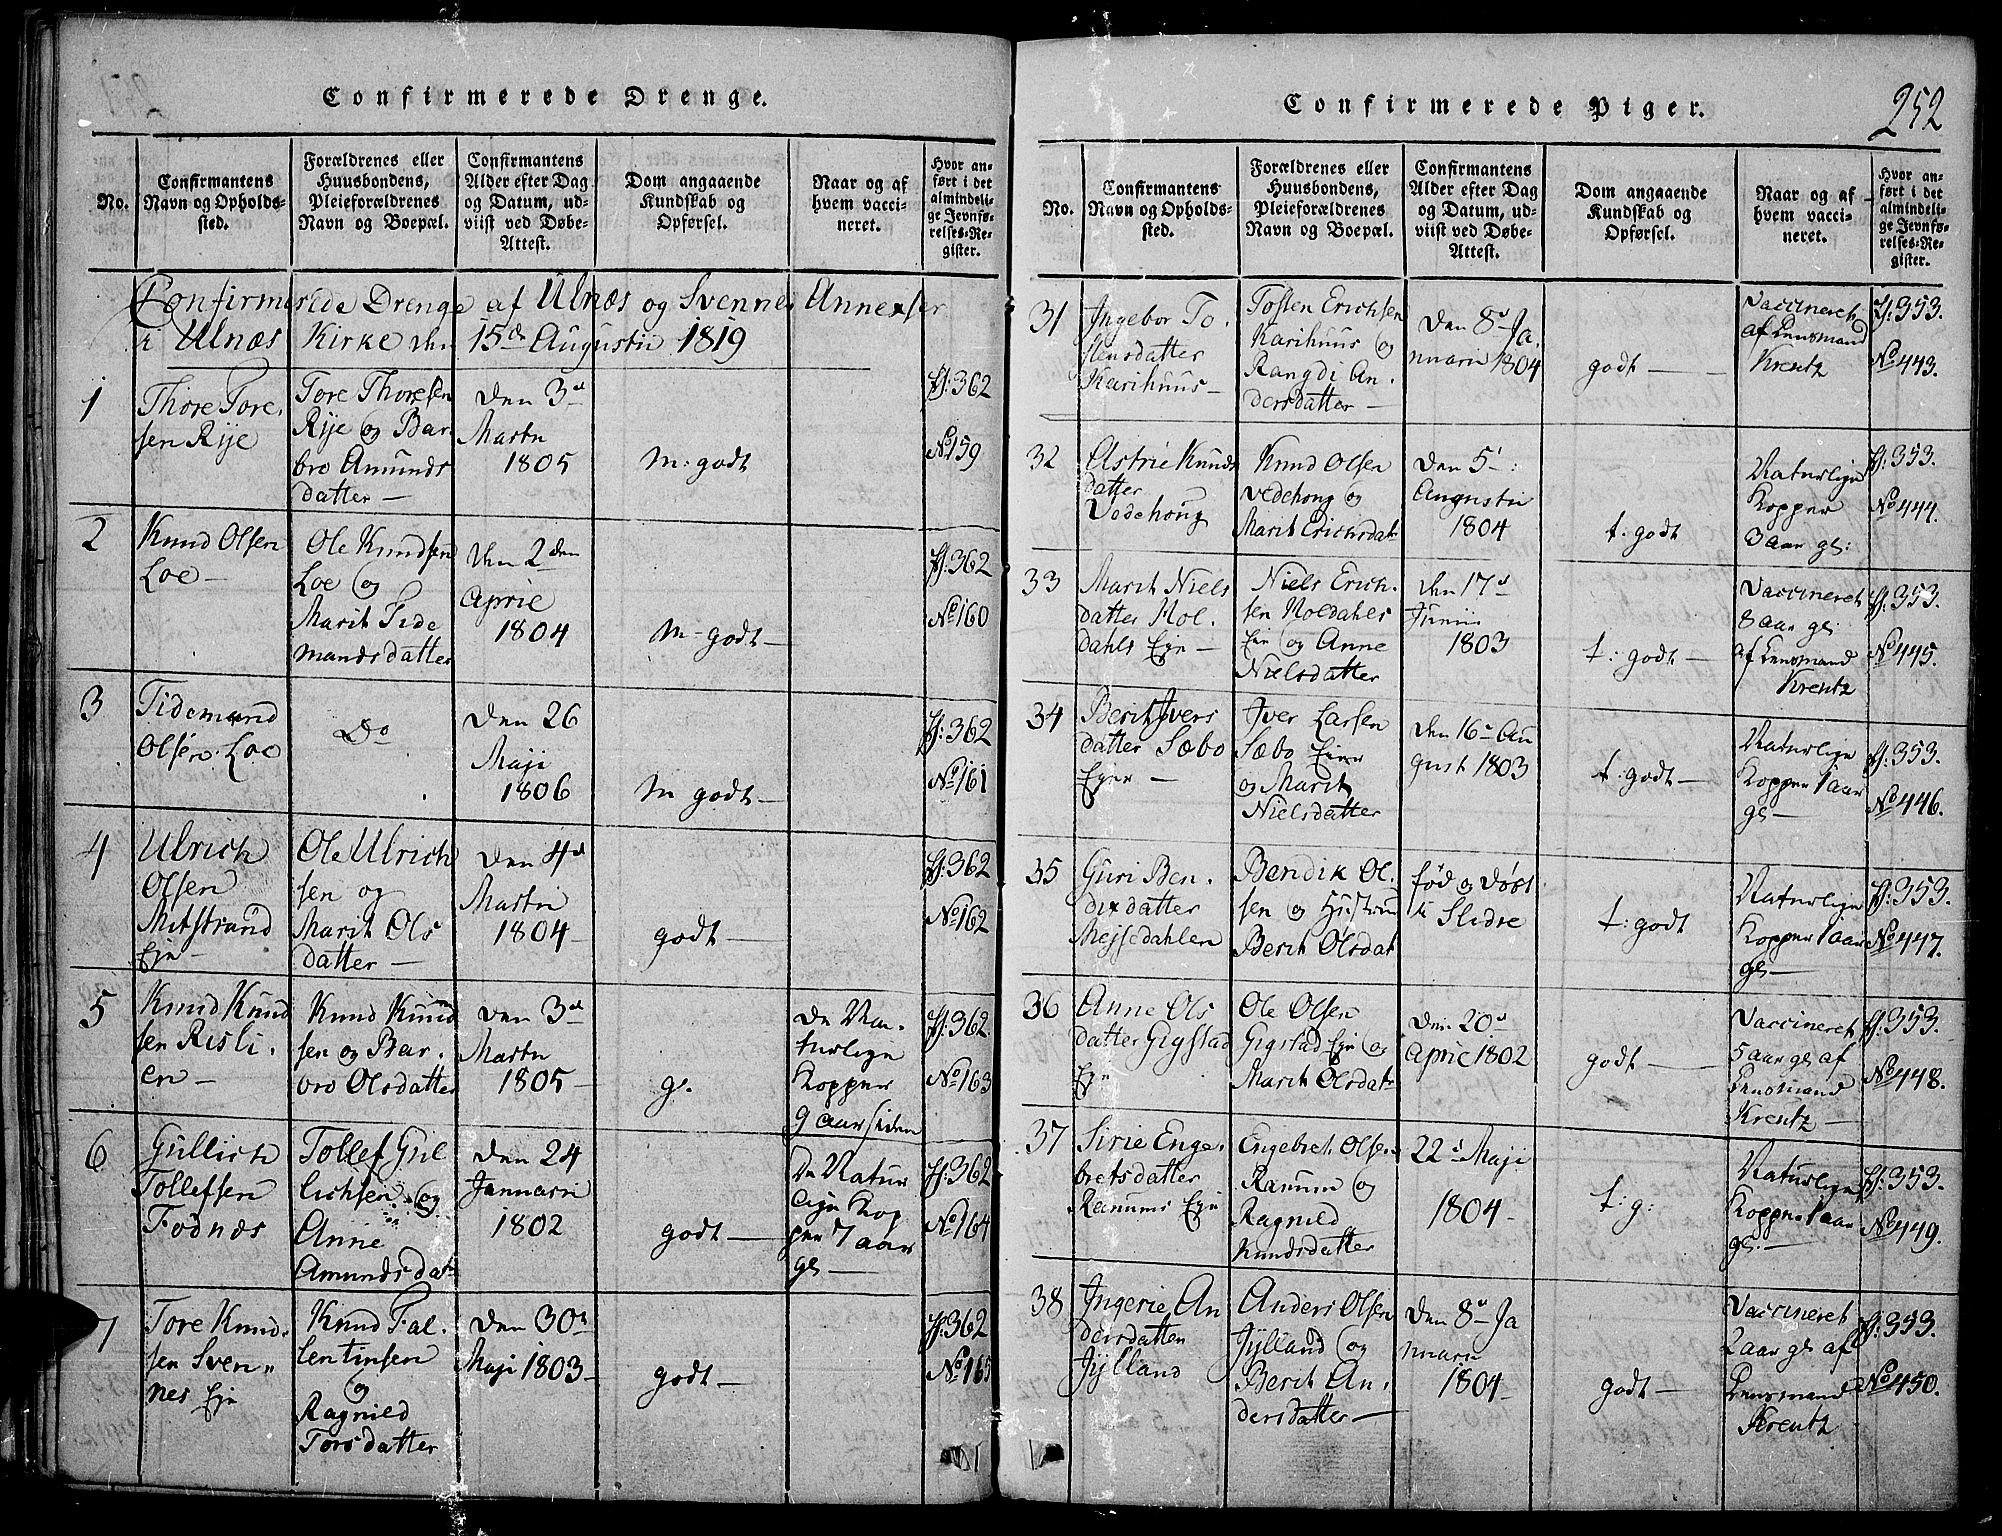 Confirmerede Drenge.
No.
Confirmantens
Navn og Opholds-
sted.
Forældrenes eller
Huusbondens,
Pleieforældrenes
Navn og Boepæl.
Confirmantens
Alder efter Dag
og Datum, ud-
viist ved Døbe-
Attest.
Dom angaaende
Kundskab og
Opførsel.
Naar og af
hvem vacci-
neret.
Hvor an-
ført i det
almindeli-
ge Jevnfø-
relses-Re-
gister.
Confirmerede Drenge af Ulnæs og Svennes Annexer
i Ulnæs Kirke den 15de Augustii 1819
1
Thore Tore-
sen Rye
Tore Thoresen
Rye og Bar-
bro Amunds
datter —
Den 3d
Martii
1805
m: godt
f: 362
No 159
2
Knud Olsen
Loe —
Ole Knudsen
Loe og
Marit Tide
mandsdatter
Den 2den
April
1804
m- godt -
f: 362
No 160
3
Tidemand
Olsen Loe
Do
Den 26
Maji
1806
m godt —
f: 362
No 161
4
Ulrich
Olsen
Mitstrand
Eje —
Ole Ulrich
sen og
Marit Ols
datter —
Den 4d
Martii
1804 -
godt —
f: 362
No 162
5
Knud Knud
sen Risli-
en —
Knud Knud
sen og Bar-
bro Olsdatter
Den 3d
Martii
1805 -
g.
De Na-
turlige
Kopper
9 aar siden
f: 362
No 163
6
Gullich
Tollefsen
Fodnæs
Tollef Gul
lichsen og
Anne
Amundsdat
Den 24
Januarii
1802
godt —
De Natur
lige Kop
per 7 aar
gl —
f: 362
No 164
7
Tore Knud-
sen Sven-
nes Eje
Knud Fal-
lentinsen
og
Ragnild
Torsdatter
Den 30d
Maji 1803 -
godt —
f: 362
No 165
Confirmerede Piger.
252
No.
Confirmantens
Navn og Opholds-
sted.
Forældrenes eller
Huusbondens,
Pleieforældrenes
Navn og Boepæl.
Confirmantens
Alder efter Dag
og Datum, ud-
viist ved Døbe-
Attest.
Dom angaaende
Kundskab og
Opførsel.
Naar og af
hvem vacci-
neret.
Hvor an-
ført i det
almindeli-
ge Jevnfø-
relses-Re-
gister.
31
Ingebor To-
stensdatter
Karihuus —
Tosten Erichsen
Karihuus og
Rangdi An-
dersdatter —
Den 8d Ja-
nuarii 1804
godt —
Vaccineret
af Lensmand
Krentz
f: 353.
No 443.
32
Astrie Knuds
datter
Vedehong
Knud Olsen
Vedehong og
Marit Erichsdat
Den 5t
Augustii
1804
t. godt
Naturlige
Kopper
3 aar gl:
f: 353.
No 444.
33
Marit Niels
datter Mol-
dahls Eje —
Niels Erich-
sen Moldahls
Eje og Anne
Nielsdatter
Den 17d
Junii
1803
t: godt —
Vaccineret
8 aar gl:
af Lensmand
Krentz
f: 353.
No 445.
34
Berit Ivers
datter Sæbo
Ejer —
Iver Larsen
Sæbo Ejer
og Marit
Nielsdatter
Den 16d Au
gust 1803
t. godt —
Naturlige
Kopper 1 aar
gl —
f: 353.
No 446.
35
Guri Ben-
dixdatter
Mejsedahlen
Bendik Ol-
sen og Hustrue
Berit Olsdat
fød og døbt
i Slidre
t: godt
Naturlige
Kopper 1 aar
gl —
f: 353.
No 447.
36
Anne Ols
datter Gigstad
Eje
Ole Olsen
Gigstad Eje og
Marit Olsdat
Den 20d
April 1802
godt —
Vaccineret
5 aar gl af
Lensmand
Krentz —
f: 353.
No 448.
37
Sirie Enge-
bretsdatter
Ranums Eje
Engebret Olsen
Ranum og
Ragnild
Knudsdatter
22d Maji
1804 -
t: g:
Naturlige
Kopper 1 aar
gl. —
f: 353.
No 449.
38
Ingerie An
dersdatter
Jylland
Anders Olsen
Jylland og
Berit An-
dersdatter —
Den 8d Ja
nuarii
1804 -
godt —
Vaccineret
2 aar gl af
Lensmand
Krentz
f: 353.
No 450.